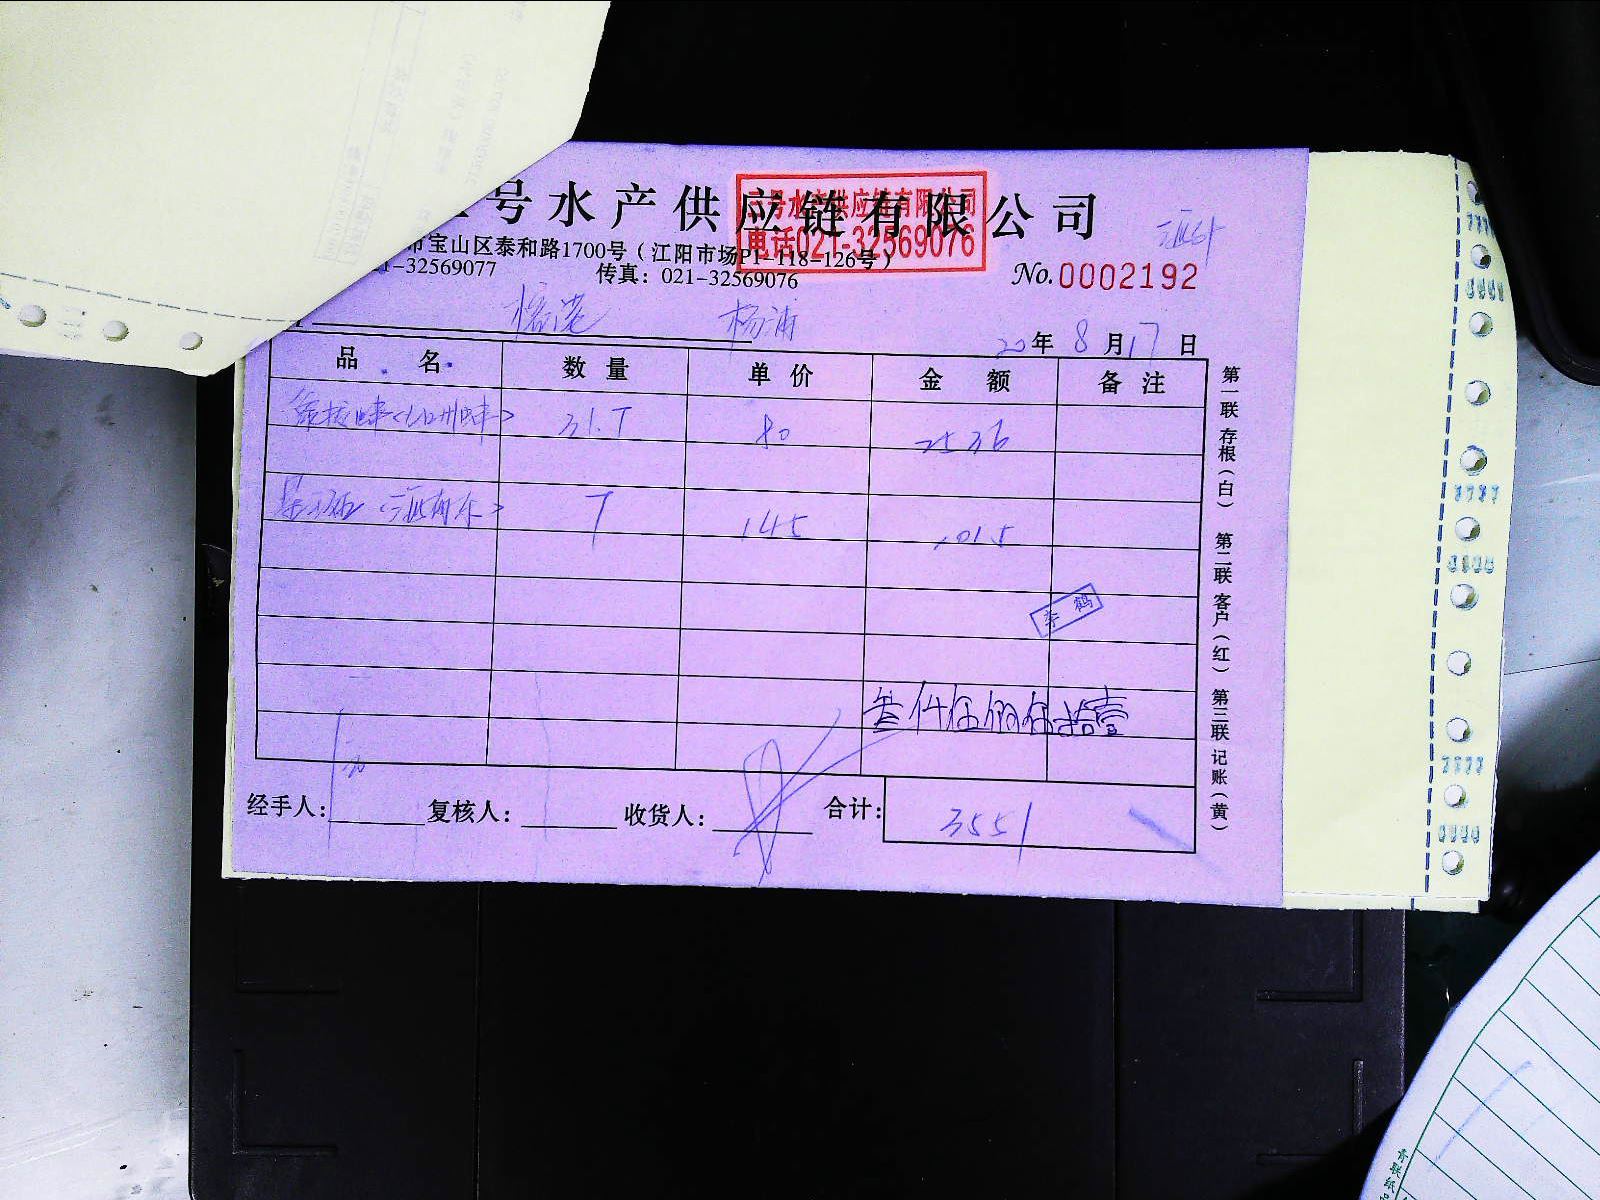 号水产供应链有限公司
三号水产供应链有限公司
电话021-32569076
市宝山区泰和路1700号（江阳市场P1-118-126号）
1-32569077 传真：021-32569076
No.0002192
杨浦
20年8月17日
品名 数量 单价 金额 备注
31.7 80 2536
7 145 1015
李鹤
叁仟伍佰伍拾壹
经手人： 复核人： 收货人： 合计： 3551
第一联 存根（白） 第二联 客户（红） 第三联 记账（黄）
青联纸品